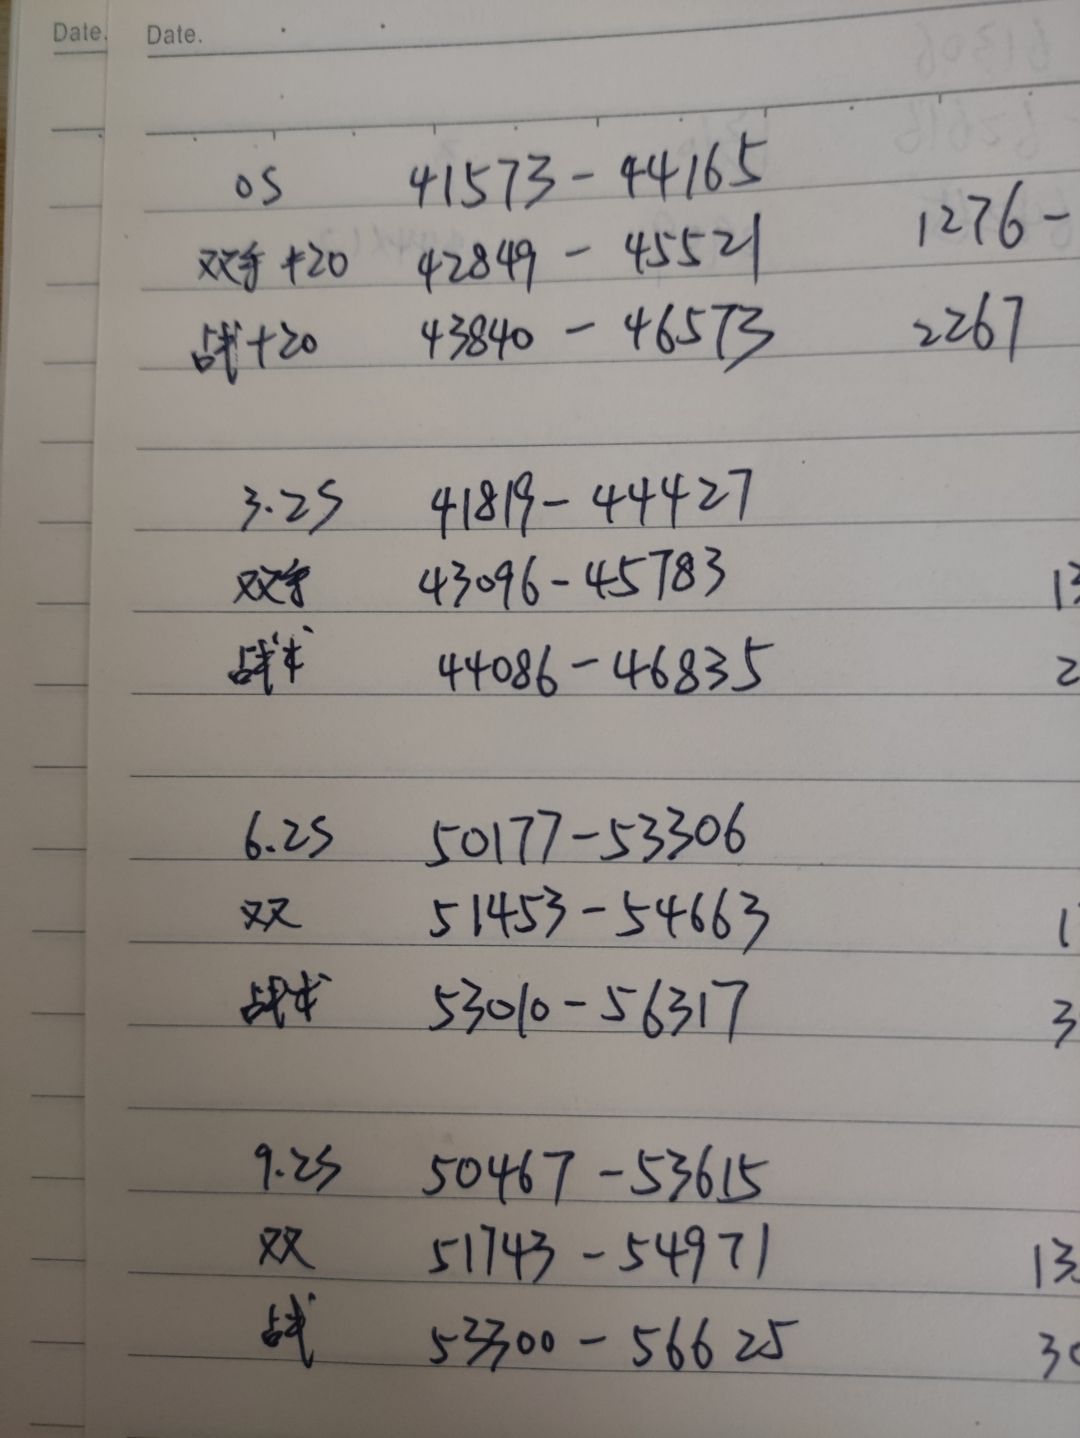 Date. Date.
0S 41573-44165
双手+20 42849-45521 1276-
战+20 43840-46573 2267
3.2S 41819-44427
双手 43096-45783 13
战术 44086-46835 2
6.2S 50177-53306
双 51453-54663 1
战术 53010-56317 3
9.2S 50467-53615
双 51743-54971 13
战 53300-56625 30